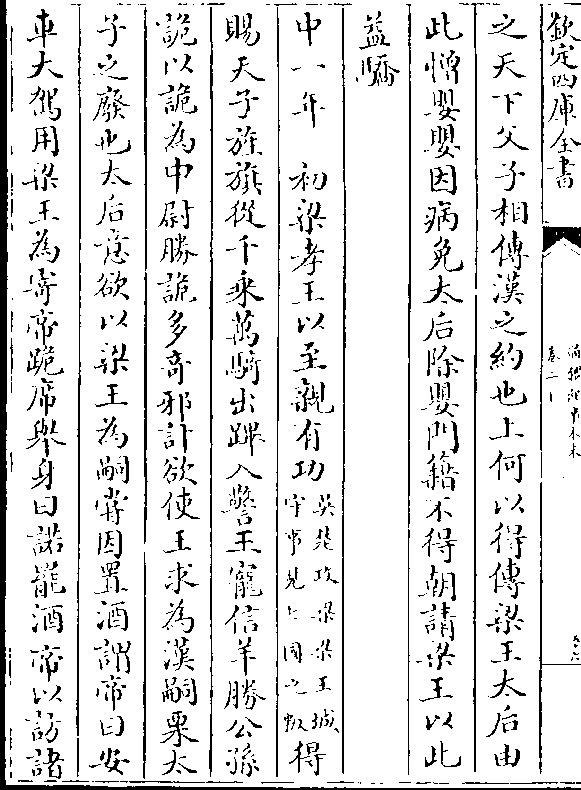 欽定四庫全書
通鑑紀事本末
卷二上
之天下父子相傳漢之約也上何以得傳梁王太后由
此憎嬰嬰因病免太后除嬰門籍不得朝請梁王以此
益驕
中二年 初梁孝王以至親有功吳楚攻梁梁王城守事見七國之叛得
賜天子旌旗從千乘萬騎出蹕入警王寵信羊勝公孫
詭以詭為中尉勝詭多奇邪計欲使王求為漢嗣栗太
子之廢也太后意欲以梁王為嗣嘗因置酒謂帝曰安
車大駕用梁王為寄帝跪席舉身曰諾罷酒帝以訪諸